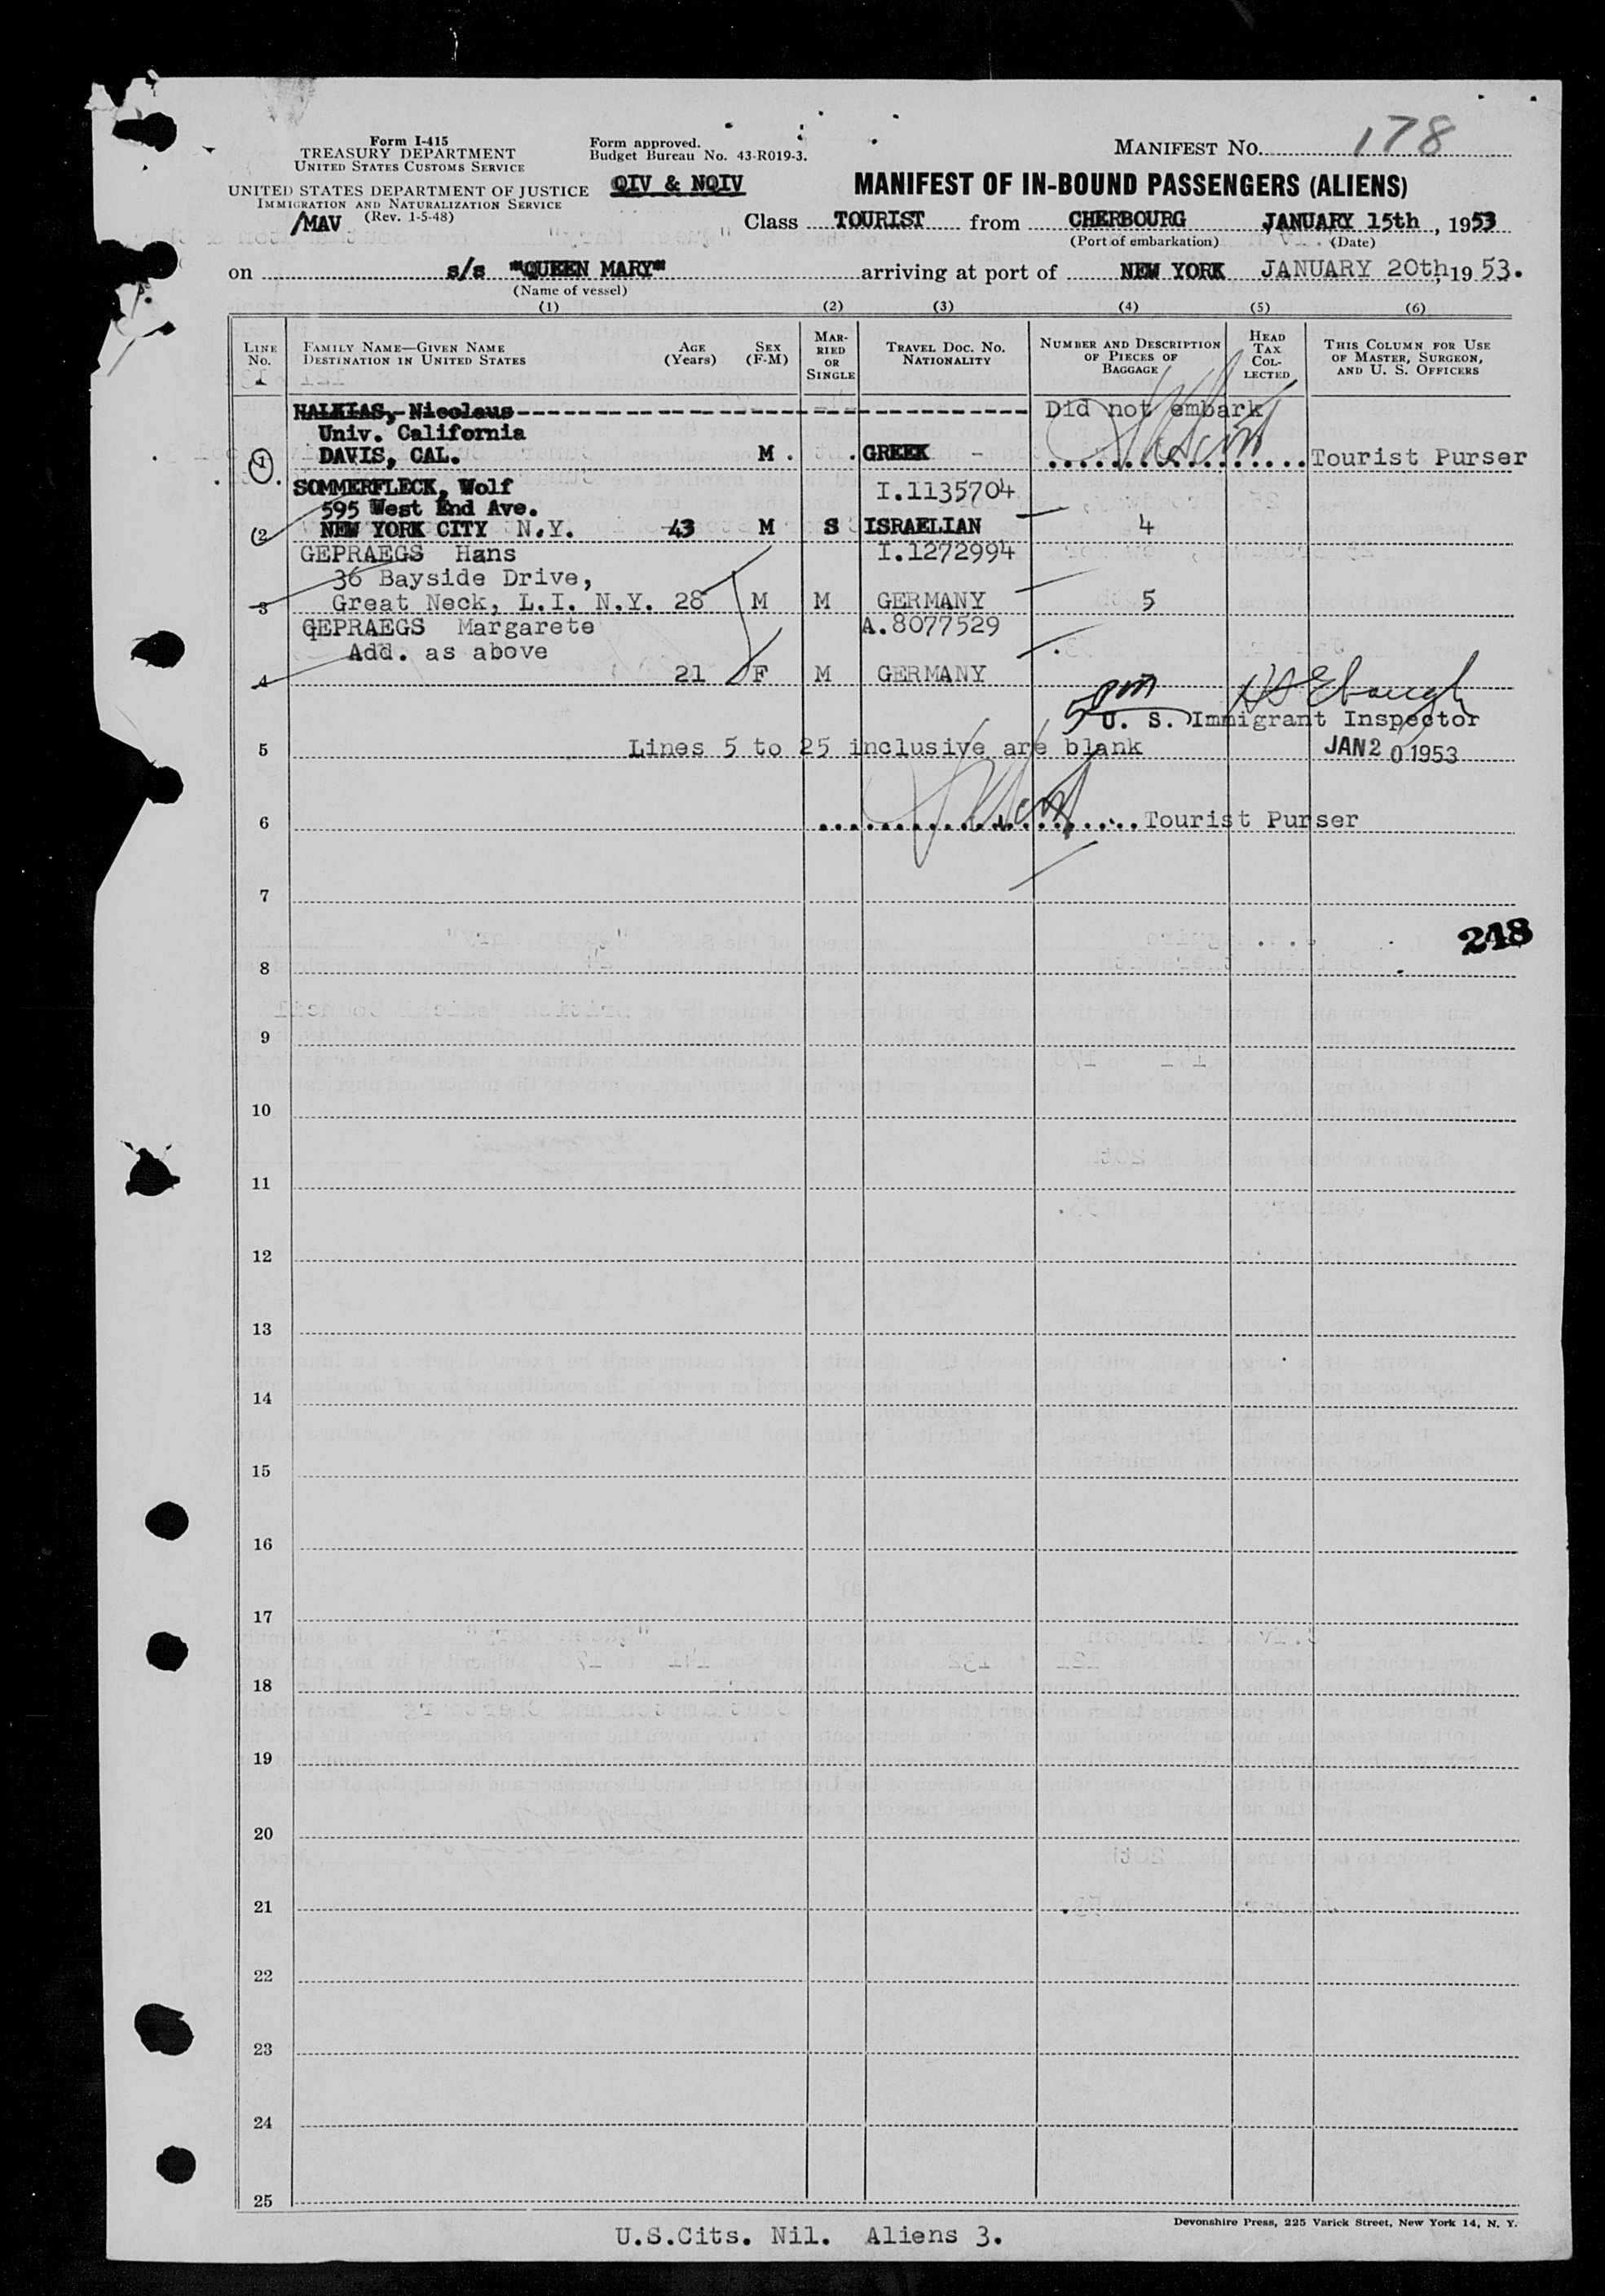 Form I-415
TREASURY DEPARTMENT
UNITED STATES CUSTOMS SERVICE
UNITED STATES DEPARTMENT OF JUSTICE
IMMIGRATION AND NATURALIZATION SERVICE
/MAV (Rev. 1-5-48)
Form approved.
Budget Bureau No. 43-R019-3.
QIV & NQIV
MANIFEST NO. 178
MANIFEST OF IN-BOUND PASSENGERS (ALIENS)
Class TOURIST from CHERBOURG JANUARY 15th, 1953
(Port of embarkation) (Date)
on s/s "QUEEN MARY" arriving at port of NEW YORK JANUARY 20th, 1953.
(Name of vessel)
(1) (2) (3) (4) (5) (6)
LINE NO. FAMILY NAME—GIVEN NAME DESTINATION IN UNITED STATES AGE (Years) SEX (F-M) MARRIED OR SINGLE TRAVEL DOC. NO. NATIONALITY NUMBER AND DESCRIPTION OF PIECES OF BAGGAGE HEAD TAX COLLECTED THIS COLUMN FOR USE OF MASTER, SURGEON, AND U. S. OFFICERS
HALKIAS, Nicolaus Did not embark
Univ. California
1 DAVIS, CAL. M . . GREEK - Tourist Purser
SOMMERFLECK, Wolf I.1135704
595 West End Ave.
2 NEW YORK CITY N.Y. 43 M S ISRAELIAN 4
GEPRAEGS Hans I.1272994
36 Bayside Drive,
3 Great Neck, L.I. N.Y. 28 M M GERMANY 5
GEPRAEGS Margarete A.8077529
Add. as above
4 21 F M GERMANY
5pm
U. S. Immigrant Inspector
5 Lines 5 to 25 inclusive are blank JAN 20 1953
6 Tourist Purser
7
248
8
9
10
11
12
13
14
15
16
17
18
19
20
21
22
23
24
25
Devonshire Press, 225 Varick Street, New York 14, N. Y.
U.S.Cits. Nil. Aliens 3.